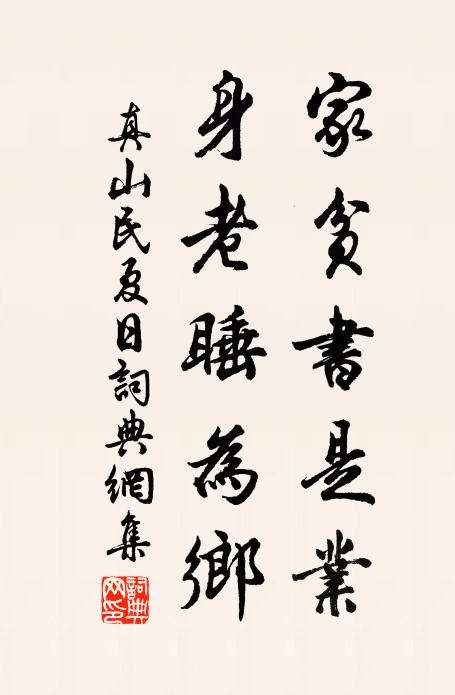 家貧書是業
身老睡為鄉
真山民夏日詞典網集
詞典網印